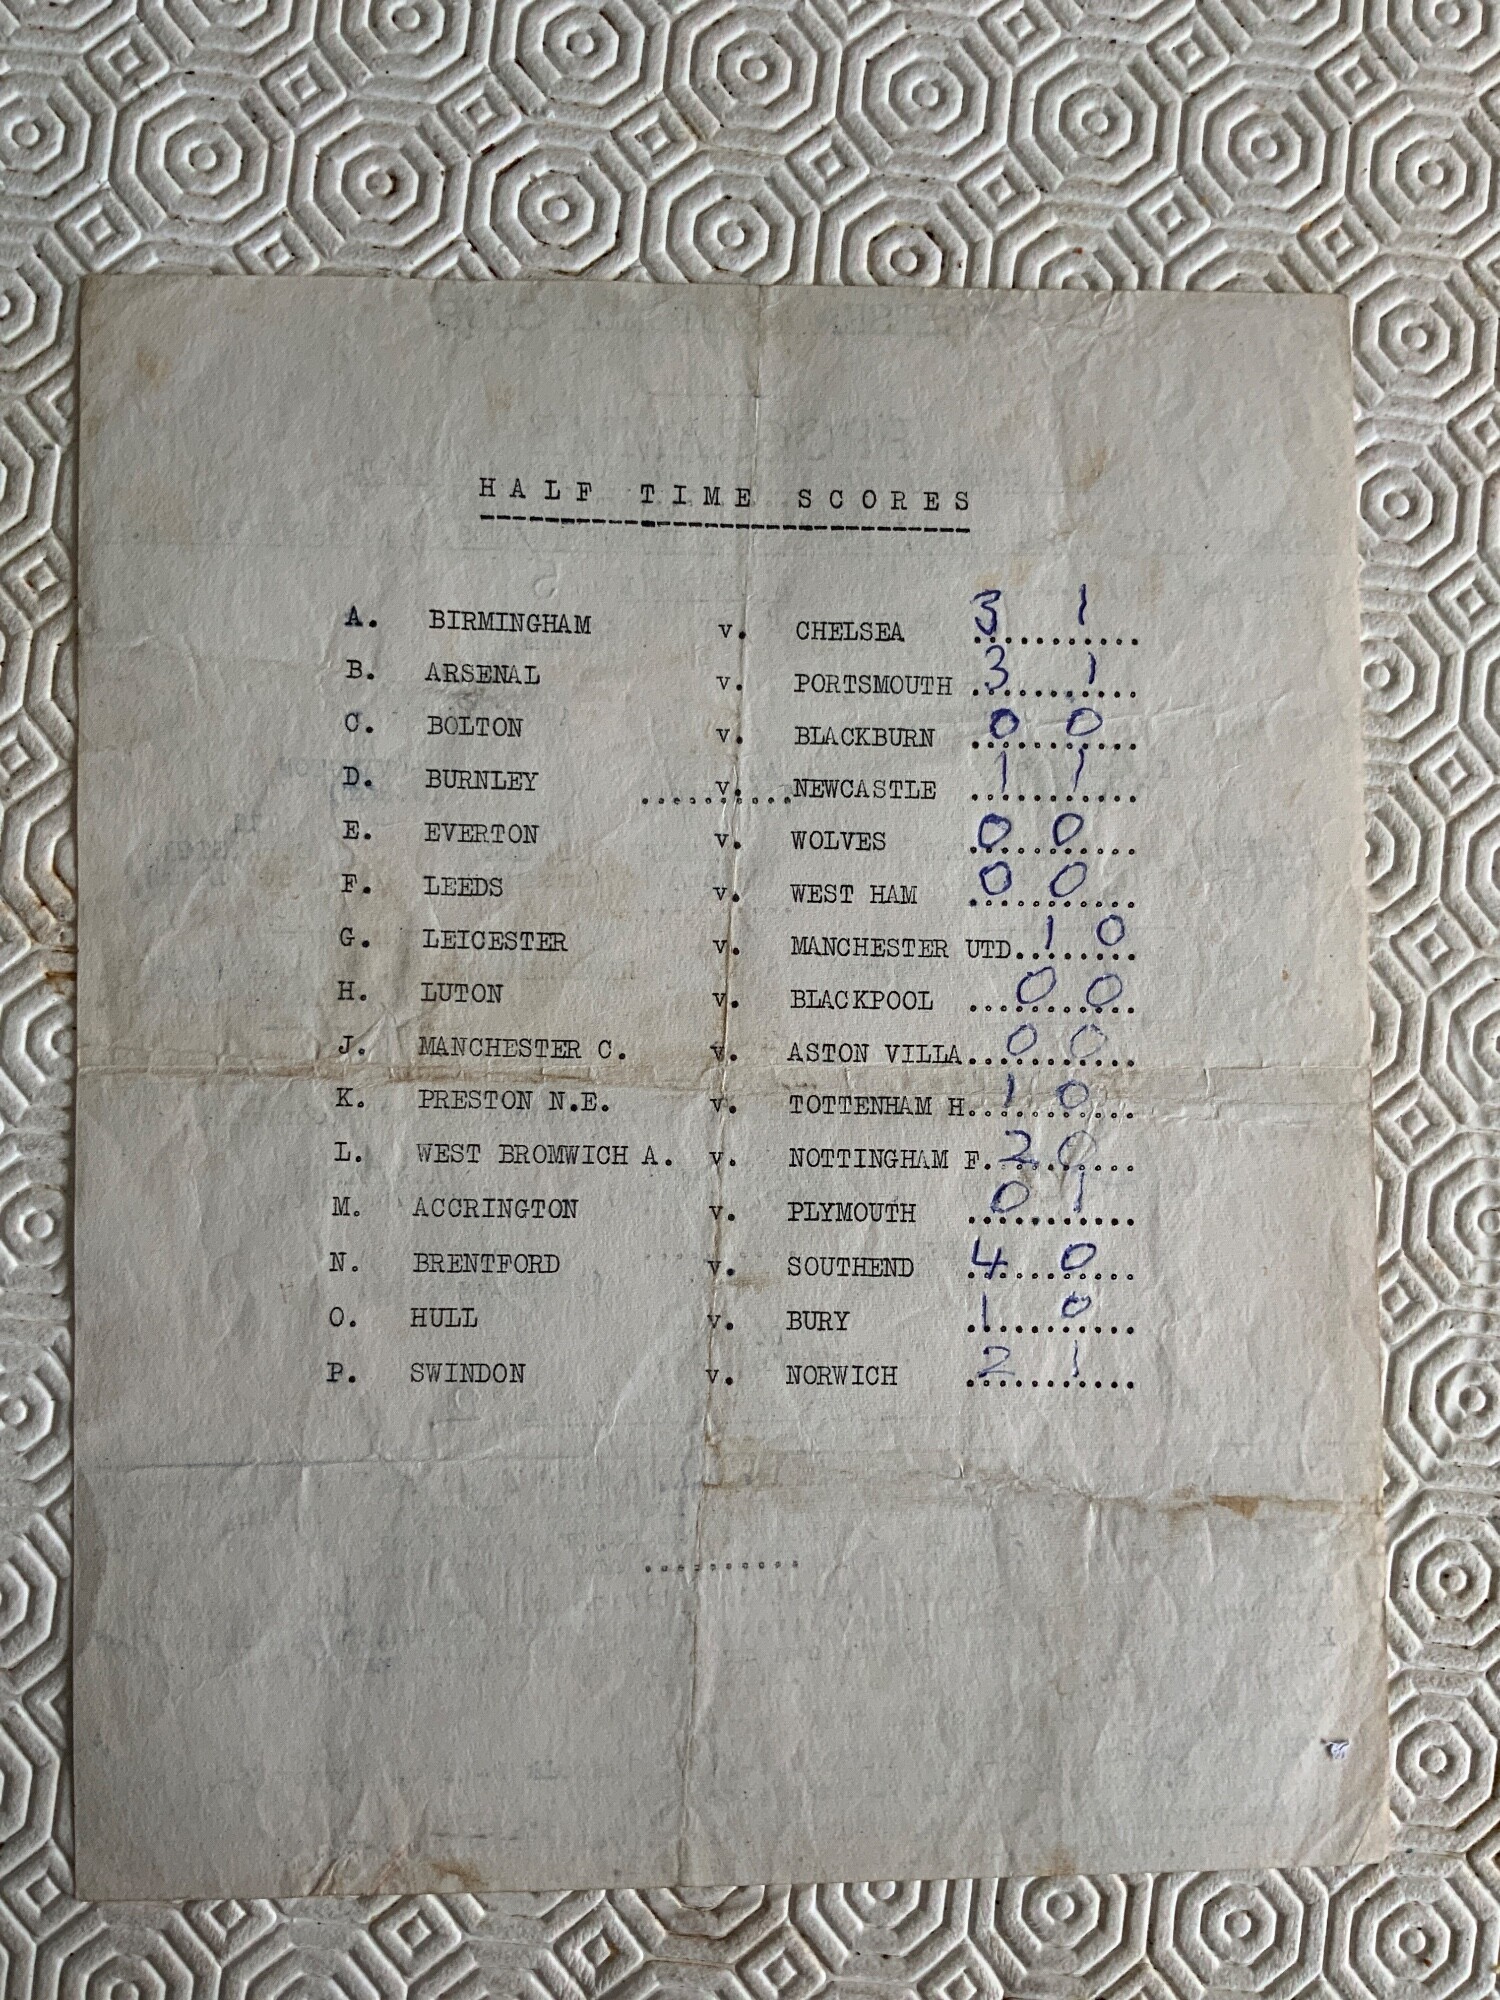 HALF TIME SCORES
A. BIRMINGHAM v. CHELSEA 3 1
B. ARSENAL v. PORTSMOUTH 3 1
C. BOLTON v. BLACKBURN 0 0
D. BURNLEY v. NEWCASTLE 1 1
E. EVERTON v. WOLVES 0 0
F. LEEDS v. WEST HAM 0 0
G. LEICESTER v. MANCHESTER UTD 1 0
H. LUTON v. BLACKPOOL 0 0
J. MANCHESTER C. v. ASTON VILLA 0 0
K. PRESTON N.E. v. TOTTENHAM H. 1 0
L. WEST BROMWICH A. v. NOTTINGHAM F. 2 0
M. ACCRINGTON v. PLYMOUTH 0 1
N. BRENTFORD v. SOUTHEND 4 0
O. HULL v. BURY 1 0
P. SWINDON v. NORWICH 2 1